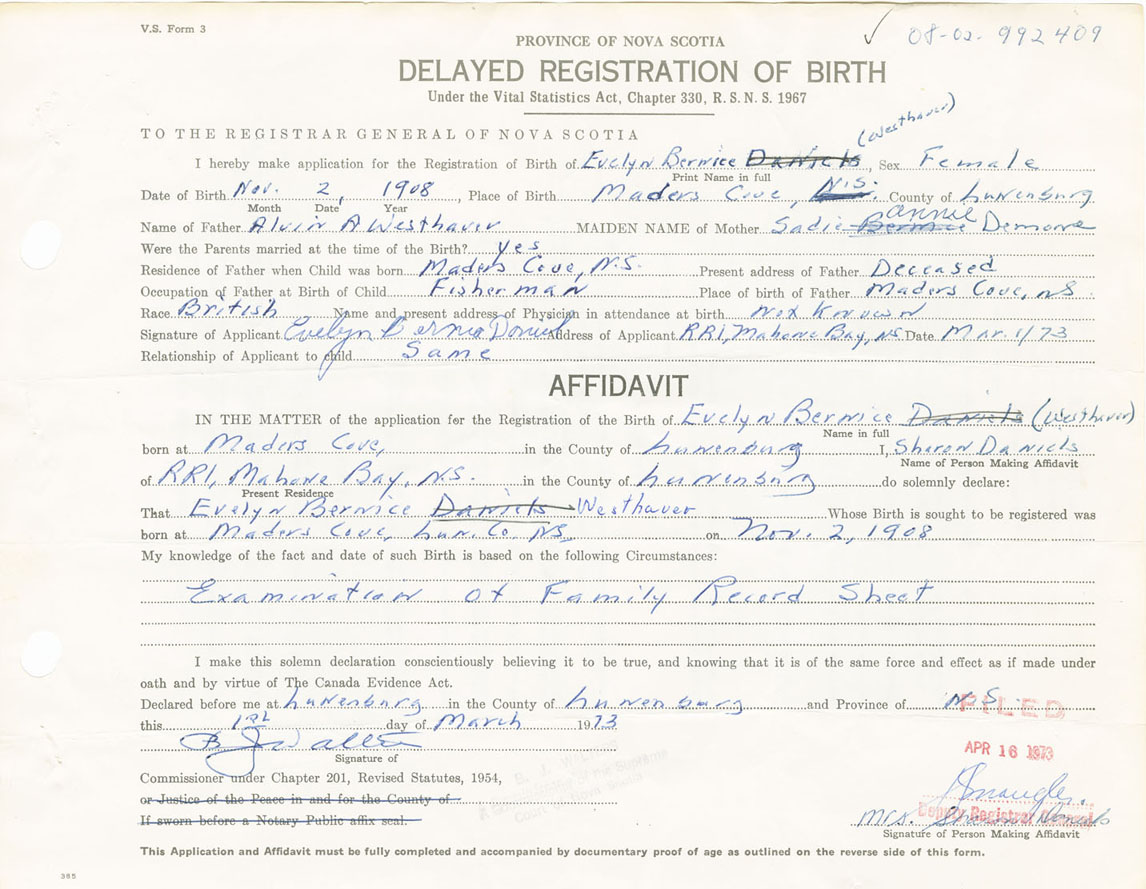 V.S. Form 3
08-02-992409
PROVINCE OF NOVA SCOTIA
DELAYED REGISTRATION OF BIRTH
Under the Vital Statistics Act, Chapter 330, R. S. N. S. 1967
(Westhaver)
TO THE REGISTRAR GENERAL OF NOVA SCOTIA
I hereby make application for the Registration of Birth of Evelyn Bernice Daniels, Sex Female
Print Name in full
Date of Birth Nov. 2, 1908, Place of Birth Maders Cove, N.S. County of Lunenburg
Month Date Year
Name of Father Alvin A Westhaver MAIDEN NAME of Mother Sadie Bernice Annie Demone
Were the Parents married at the time of the Birth? yes
Residence of Father when Child was born Maders Cove, N.S. Present address of Father Deceased
Occupation of Father at Birth of Child Fisherman Place of birth of Father Maders Cove, NS.
Race British Name and present address of Physician in attendance at birth Not Known
Signature of Applicant Evelyn Bernice Daniels Address of Applicant RR1, Mahone Bay, NS Date Mar. 1/73
Relationship of Applicant to child Same
AFFIDAVIT
IN THE MATTER of the application for the Registration of the Birth of Evelyn Bernice Daniels (Westhaver)
Name in full
born at Maders Cove, in the County of Lunenburg I, Sharon Daniels
Name of Person Making Affidavit
of RR1, Mahone Bay, N.S. in the County of Lunenburg do solemnly declare:
Present Residence
That Evelyn Bernice Daniels Westhaver Whose Birth is sought to be registered was
born at Maders Cove, Lun. Co. NS, on Nov. 2, 1908
My knowledge of the fact and date of such Birth is based on the following Circumstances:
Examination of Family Record Sheet
I make this solemn declaration conscientiously believing it to be true, and knowing that it is of the same force and effect as if made under
oath and by virtue of The Canada Evidence Act.
Declared before me at Lunenburg in the County of Lunenburg and Province of N.S.
FILED
this 1st day of March 1973
APR 16 1973
Signature of
B. J. 
Commissioner under Chapter 201, Revised Statutes, 1954,
of the Supreme
Court of Nova Scotia
or Justice of the Peace in and for the County of
Deputy Registrar General
If sworn before a Notary Public affix seal.
Mrs. Sharon Daniels
Signature of Person Making Affidavit
This Application and Affidavit must be fully completed and accompanied by documentary proof of age as outlined on the reverse side of this form.
385